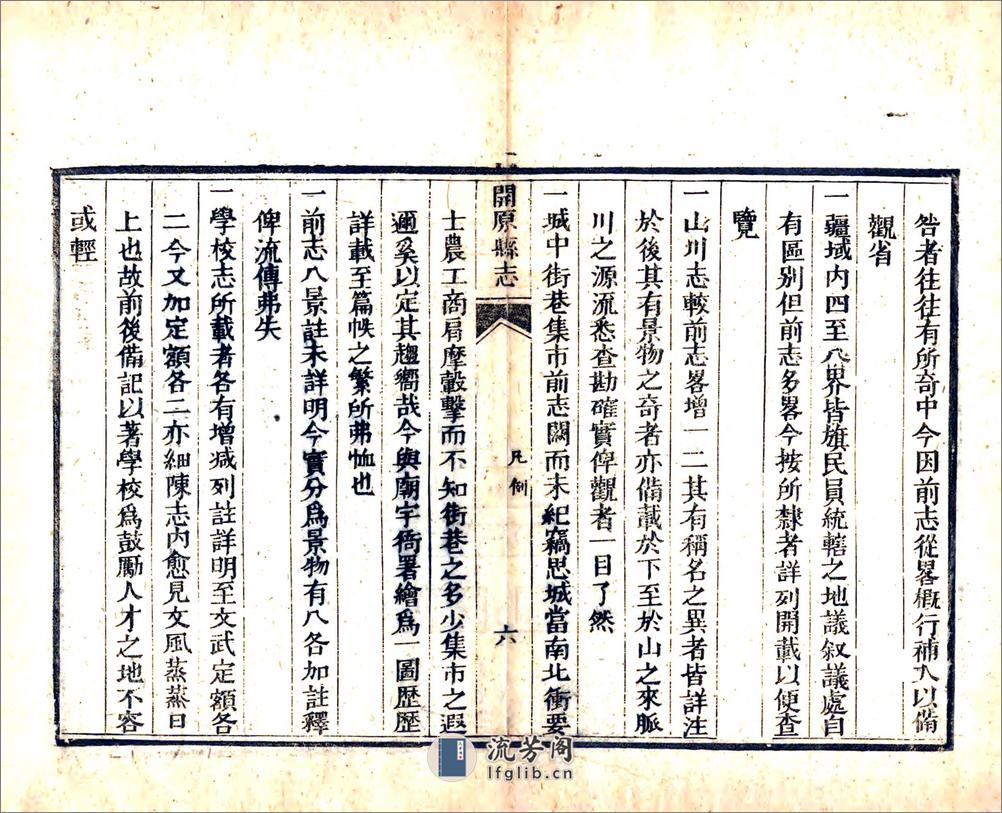 咎者往往有所奇中今因前志從畧槪行補入以備
觀省
一疆域內四至八界皆旗民員統轄之地議叙議處自
有區别但前志多畧今按所隸者詳列開載以便查
覽
一山川志較前志畧增一二其有稱名之異者皆詳注
於後其有景物之奇者亦備載於下至於山之來脈
川之源流悉查勘確實俾觀者一目了然
一城中街巷集市前志闕而未紀竊思城當南北衝要
開原縣志
凡例
六
士農工商肩摩轂擊而不知街巷之多少集市之遐
邇奚以定其趨嚮哉今與廟宇衙署繪爲一圖歷歷
詳載至篇帙之繁所弗恤也
一前志八景註未詳明今實分爲景物有八各加註釋
俾流傳弗失
一學校志所載者各有增减列註詳明至文武定額各
二今又加定額各二亦細陳志內愈見文風蒸蒸日
上也故前後備記以著學校爲鼓勵人才之地不容
或輕
流芳阁
lfglib.cn